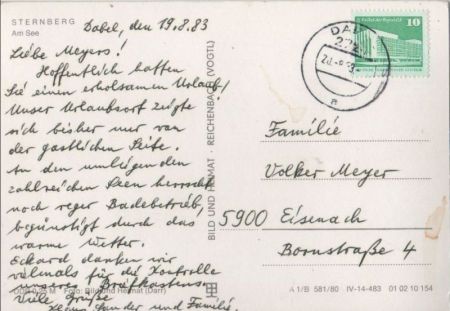 STERNBERG
Am See
Dabel, den 19.8.83
Liebe Meyers!
Hoffentlich hatten
Sie einen erholsamen Urlaub!
Unser Urlaubsort zeigte
sich bisher nur von
der gastlichen Seite.
An den umliegenden
zahlreichen Seen herrscht
noch reger Badebetrieb,
begünstigt durch das
warme Wetter.
Eckard danken wir
vielmals für die Kontrolle
unseres Briefkastens.
Viele Grüße
Sander und Familie
Foto: Bild und Heimat (Darr)
BILD UND HEIMAT · REICHENBACH (VOGTL)
10
Familie
Volker Meyer
5900 Eisenach
Bornstraße 4
A 1/B 581/80 IV-14-483 01 02 10 154